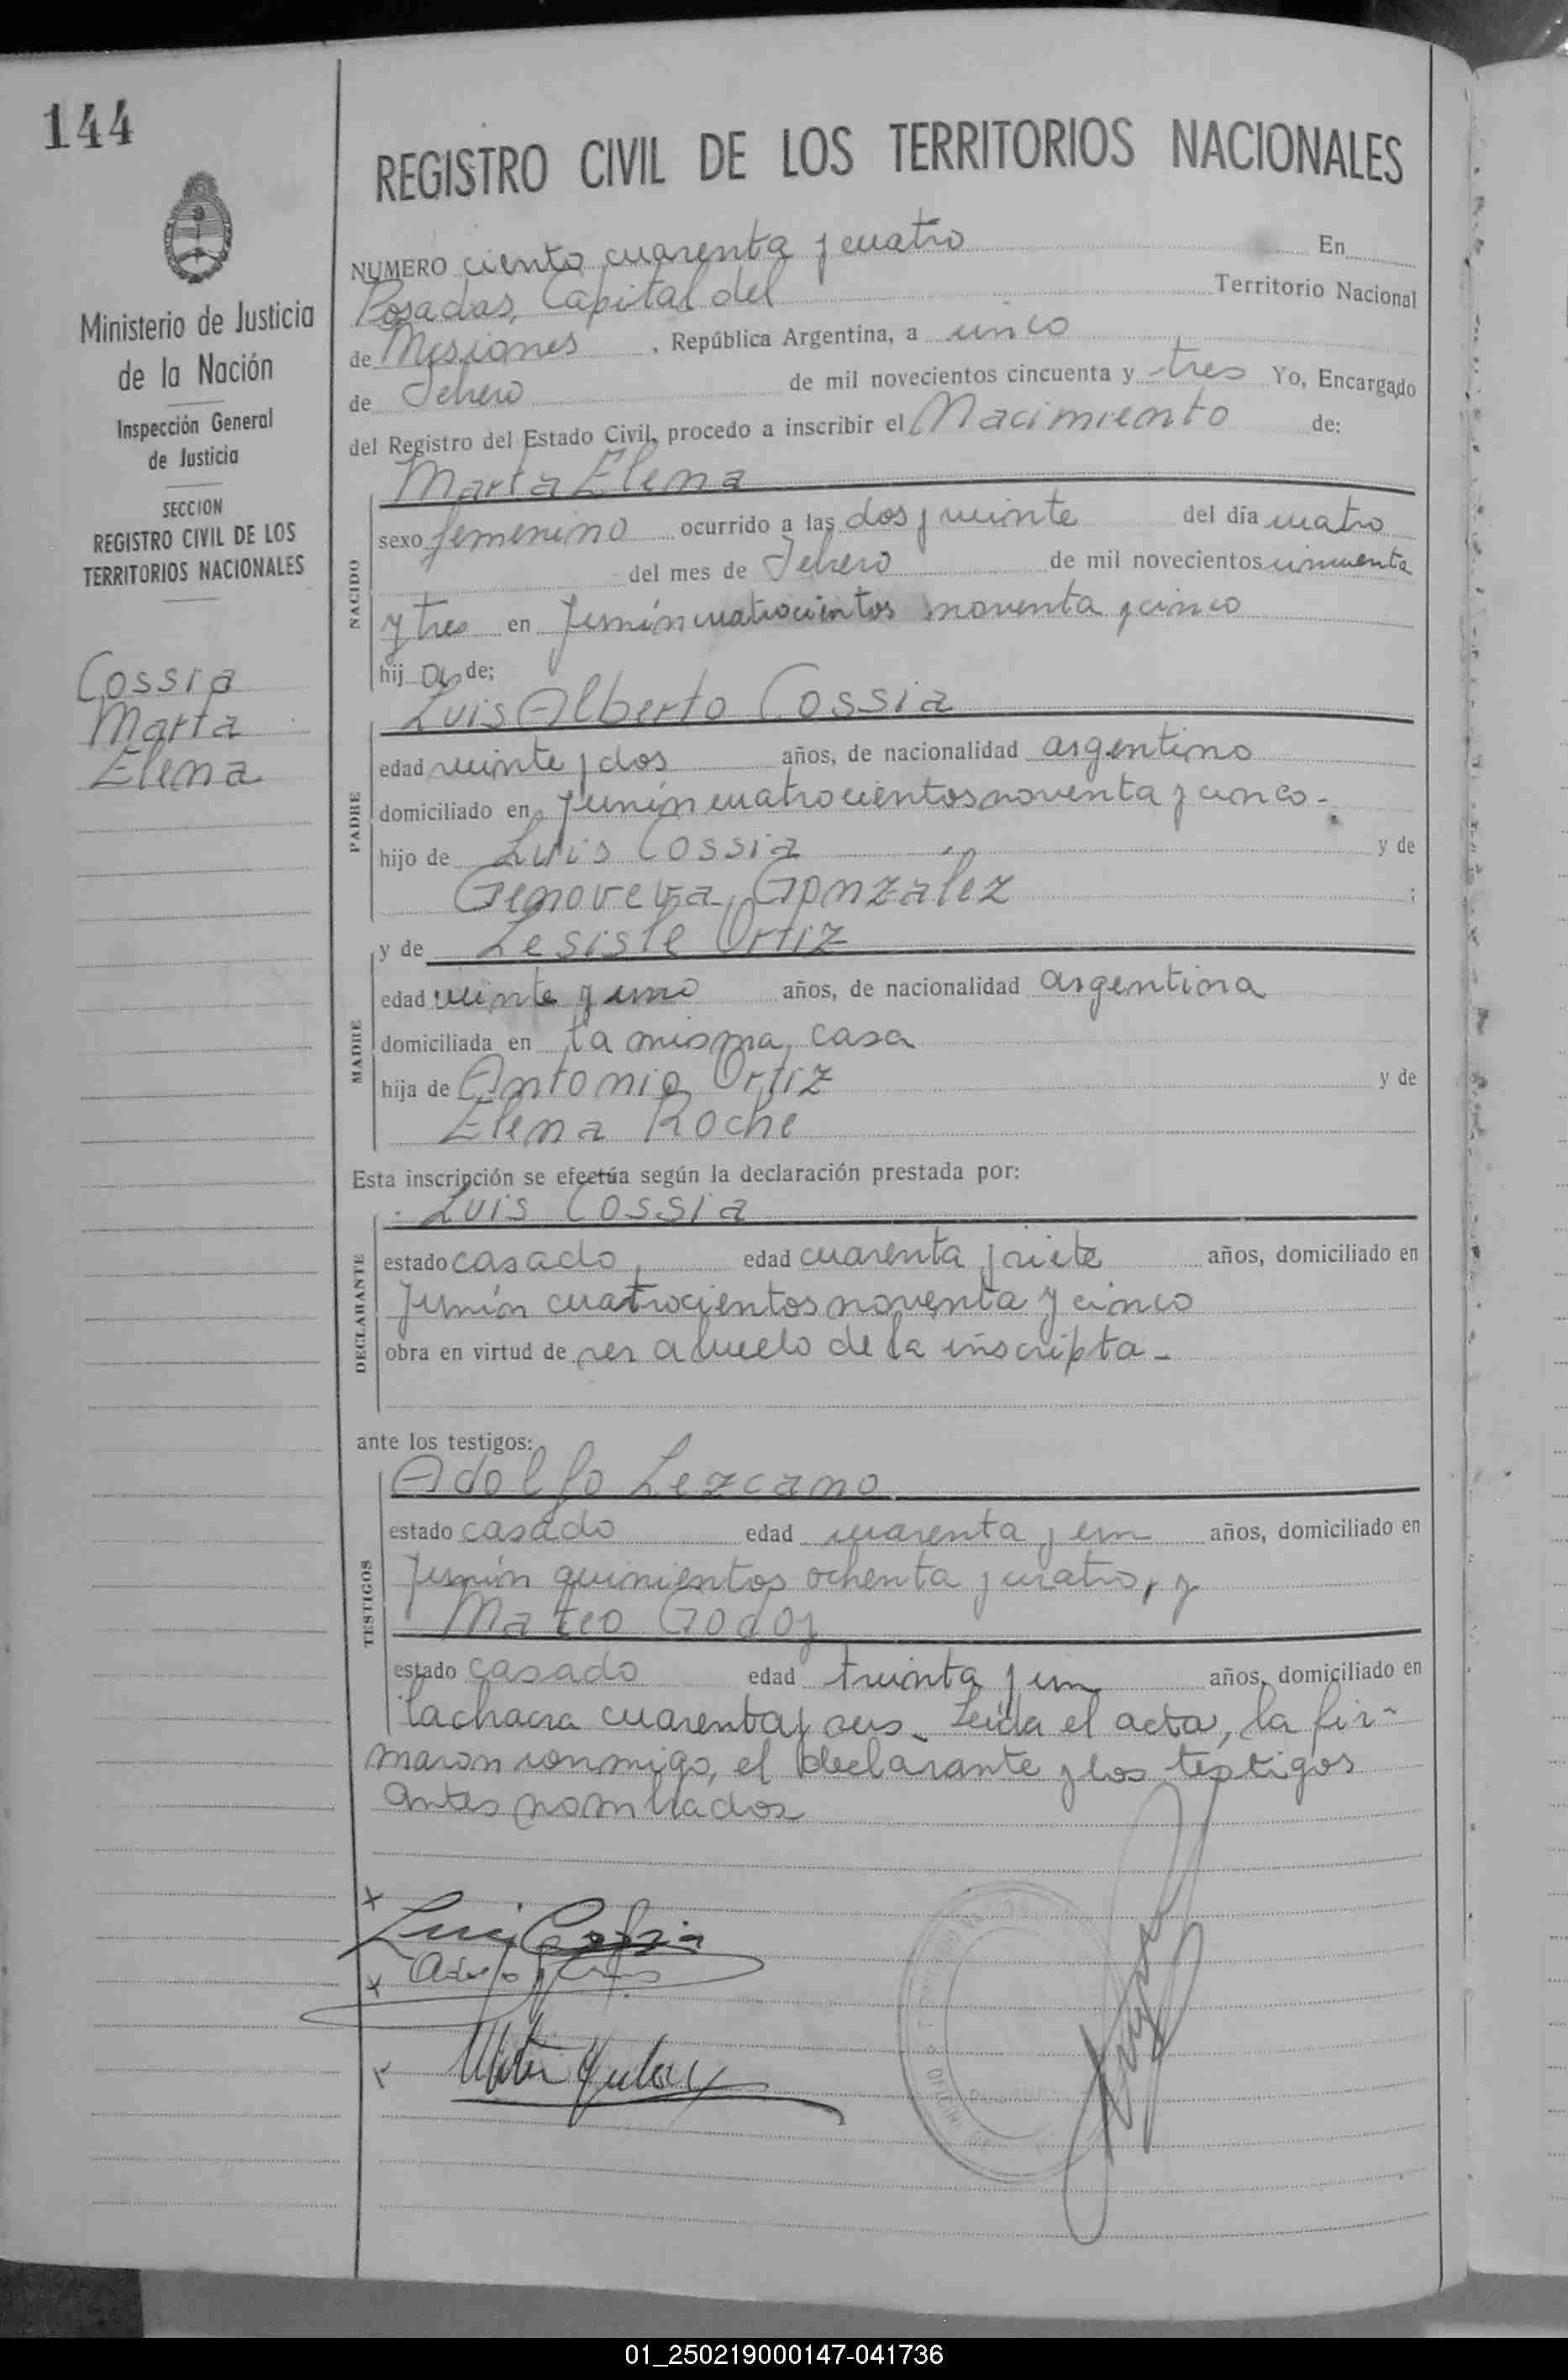 144
Ministerio de Justicia
de la Nación
Inspección General
de Justicia
SECCION
REGISTRO CIVIL DE LOS
TERRITORIOS NACIONALES
Cossia
Marta
Elena
REGISTRO CIVIL DE LOS TERRITORIOS NACIONALES
NUMERO ciento cuarenta y cuatro En
Posadas, Capital del Territorio Nacional
de Misiones, República Argentina, a cinco
de Febrero de mil novecientos cincuenta y tres Yo, Encargado
del Registro del Estado Civil, procedo a inscribir el Nacimiento de:
Marta Elena
NACIDO
sexo femenino ocurrido a las dos y veinte del día cuatro
del mes de Febrero de mil novecientos cincuenta
y tres en Junín cuatrocientos noventa y cinco
hija de;
Luis Alberto Cossia
PADRE
edad veinte y dos años, de nacionalidad argentino
domiciliado en Junín cuatrocientos noventa y cinco-
hijo de Luis Cossia y de
Genoveva González;
y de Lesisle Ortiz
MADRE
edad veinte y uno años, de nacionalidad argentina
domiciliada en la misma casa
hija de Antonio Ortiz y de
Elena Roche
Esta inscripción se efectúa según la declaración prestada por:
Luis Cossia
DECLARANTE
estado casado, edad cuarenta y siete años, domiciliado en
Junín cuatrocientos noventa y cinco
obra en virtud de ser abuelo de la inscripta-
ante los testigos:
Adolfo Lezcano
TESTIGOS
estado casado edad cuarenta y un años, domiciliado en
Junín quinientos ochenta y cuatro, y
Mateo Godoy
estado casado edad treinta y un años, domiciliado en
la chacra cuarenta y seis- Leida el acta, la fir-
maron conmigo, el declarante y los testigos
antes nombrados
Luis Cossia
01_250219000147-041736